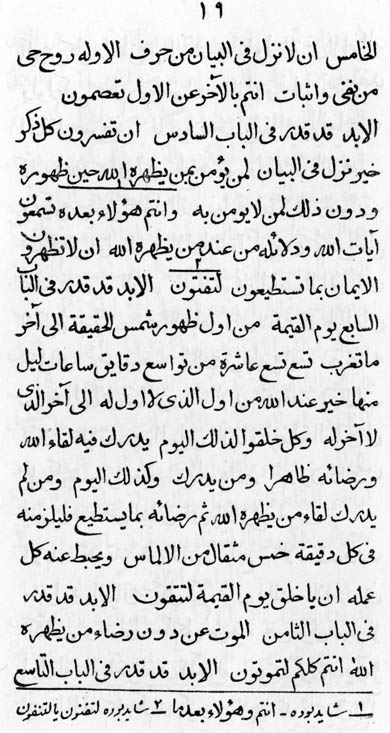 ١٩
الخامس ان لا نزل فی البیان من حرف الا وله روح حی
من نفی واثبات انتم بالآخر عن الاول تعصمون
الابد قد قدر فی الباب السادس ان تفسرون کل ذکر
خیر نزل فی البیان لمن یؤمن بمن یظهره الله حین ظهوره
ودون ذلک لمن لا یومن به وانتم هؤلاء بعده تسمعون
آیات الله ودلائله من عند من یظهره الله ان لا تظهرون
الایمان بما تستطیعون لتفتنون الابد قد قدر فی الباب
السابع یوم القیمة من اول ظهور شمس الحقیقة الی آخر
ما تغرب تسع تسع عشر عاشرة من تواسع دقایق ساعات لیل
منها خیر عند الله من اول الذی لا اول له الی آخر الذی
لا آخر له وکل خلقوا لذلک الیوم یدرک فیه لقاء الله
ورضائه ظاهرا ومن یدرک وکذلک الیوم ومن لم
یدرک لقاء من یظهره الله ثم رضائه بما یستطیع فلیلزمنه
فی کل دقیقة خمس مثقال من الالماس ویحبط عنه کل
عمله ان یا خلق یوم القیمة لتتقون الابد قد قدر
فی الباب الثامن الموت عن دون رضاء من یظهره
الله انتم کلکم لتموتون الابد قد قدر فی الباب التاسع
١ شاید بوده - انتم وهؤلاء بعد ما ٢ شاید بوده لتفتنون یا لتنفون